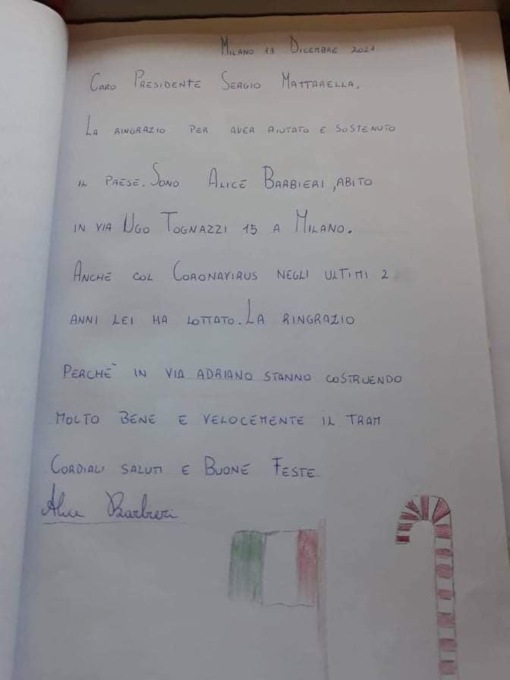 MILANO 13 DICEMBRE 2021
CARO PRESIDENTE SERGIO MATTARELLA,
LA RINGRAZIO PER AVER AIUTATO E SOSTENUTO
IL PAESE. SONO ALICE BARBIERI, ABITO
IN VIA UGO TOGNAZZI 15 A MILANO.
ANCHE COL CORONAVIRUS NEGLI ULTIMI 2
ANNI LEI HA LOTTATO. LA RINGRAZIO
PERCHÈ IN VIA ADRIANO STANNO COSTRUENDO
MOLTO BENE E VELOCEMENTE IL TRAM
CORDIALI SALUTI E BUONE FESTE
Alice Barbieri